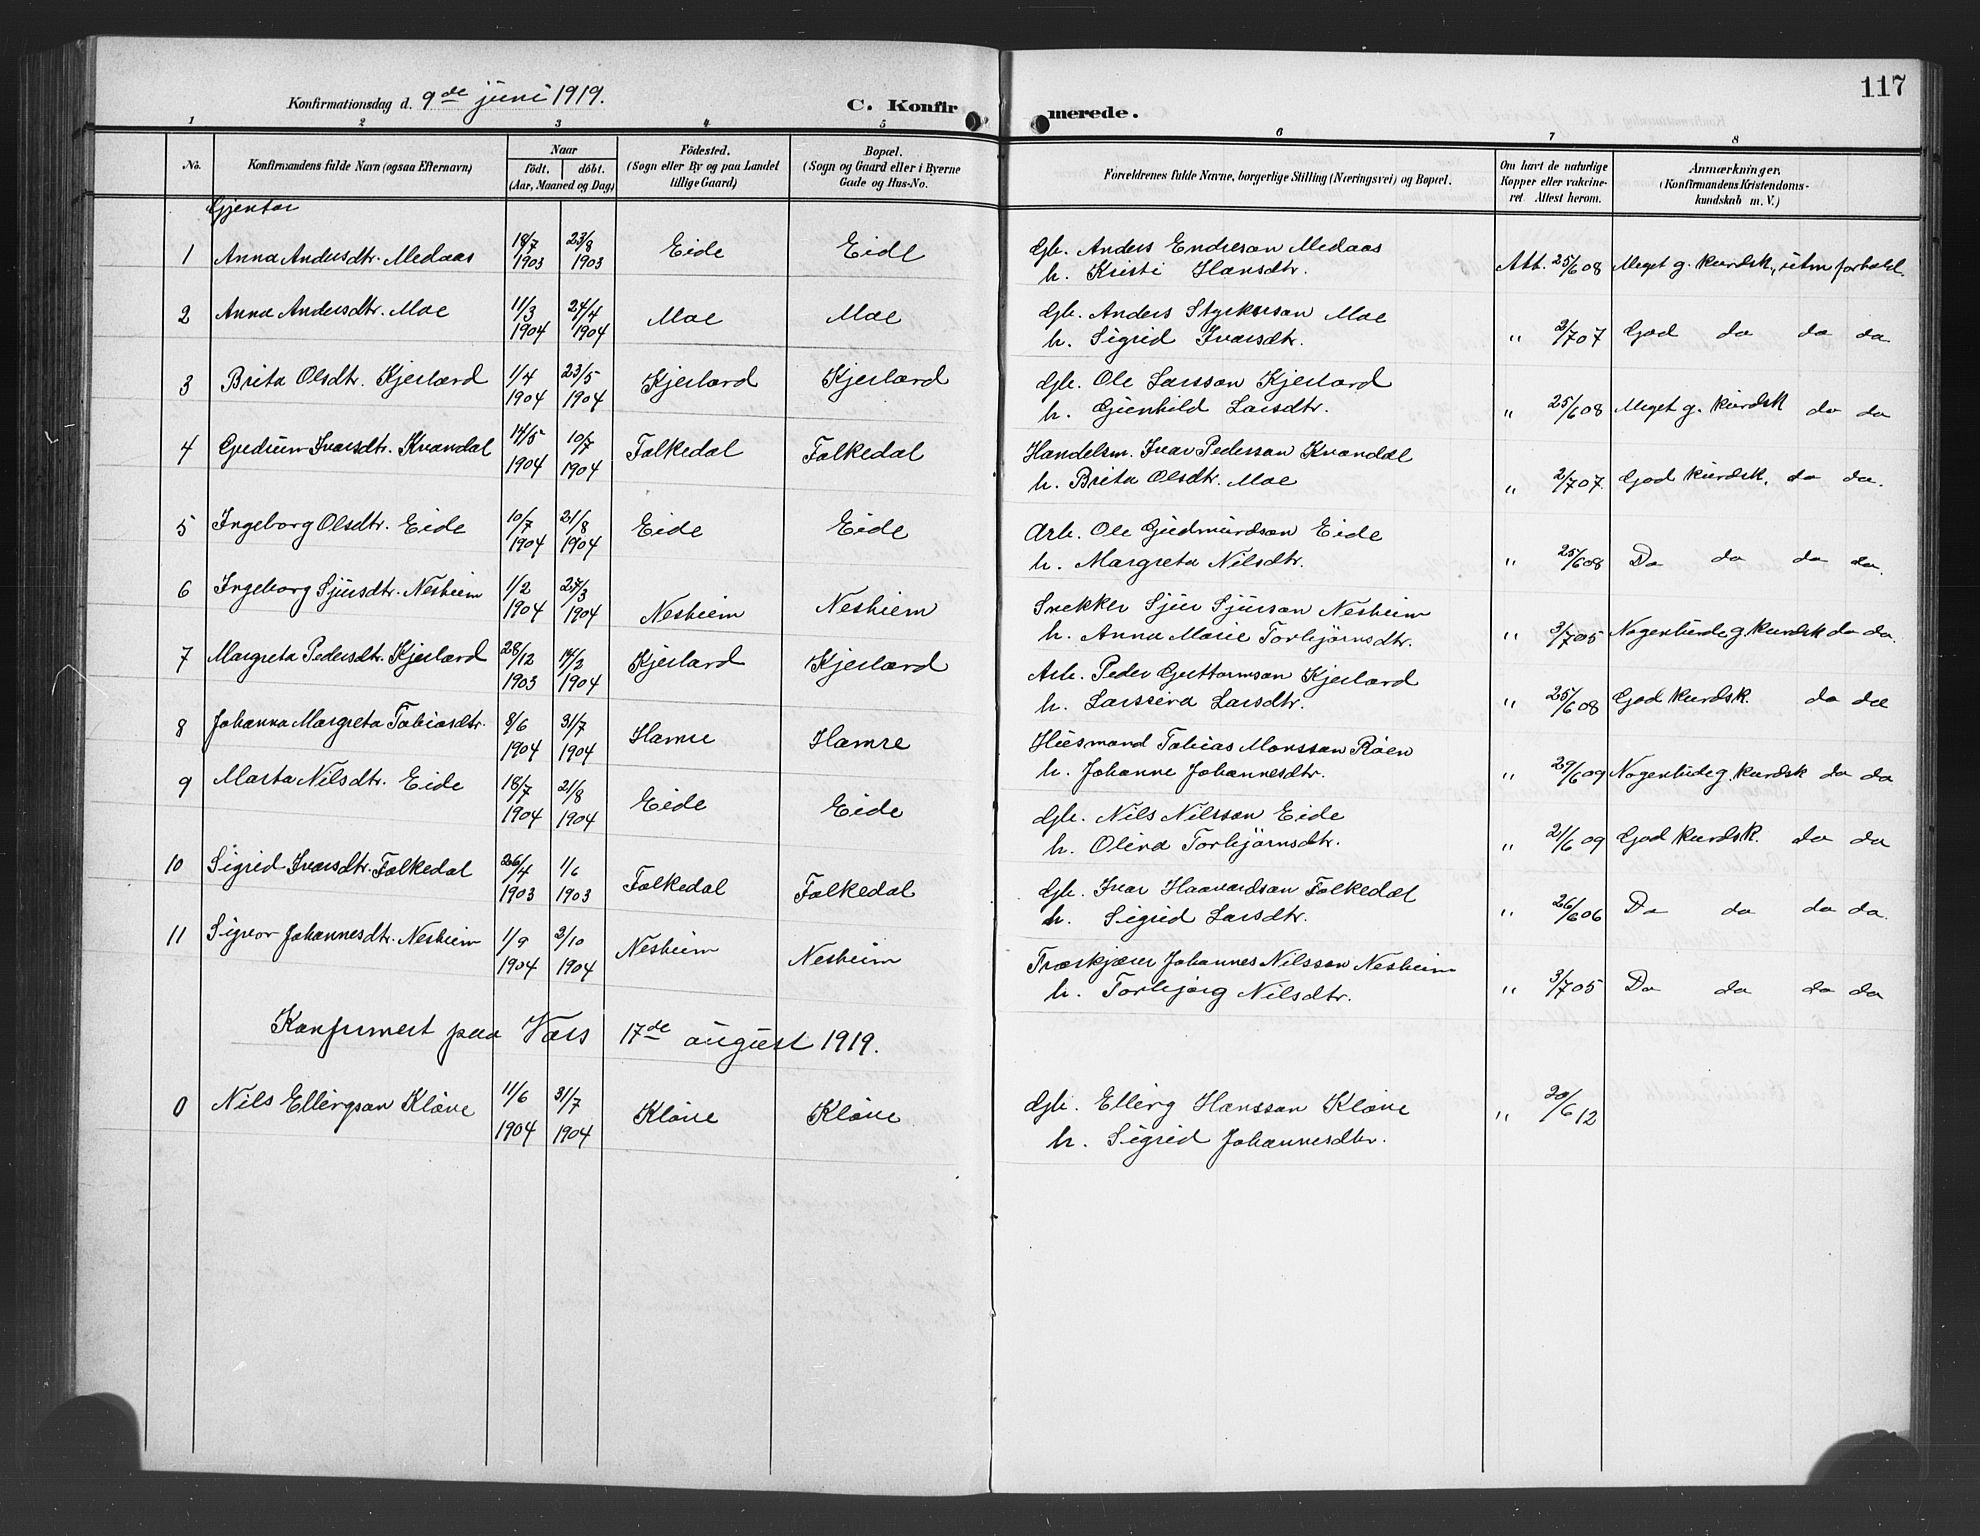 117
Konfirmationsdag d. 9de juni 1919. C. Konfirmerede.
1 2 3 4 5 6 7 8
No. Konfirmandens fulde Navn (ogsaa Efternavn) Naar født, døbt. (Aar, Maaned og Dag) Fødested. (Sogn eller By og paa Landet tillige Gaard) Bopæl. (Sogn og Gaard eller i Byerne Gade og Hus-No. Forældrenes fulde Navne, borgerlige Stilling (Næringsvei) og Bopæl. Om havt de naturlige Kopper eller vakcineret Attest herom. Anmærkninger. (Konfirmandens Kristendomskundskab m. V.)
Gjentor
1 Anna Andersdtr. Medaas 18/7 1903 23/8 1903 Eide Eide Gb. Anders Endreson Medaas
h. Kristi Hansdtr. Att. 25/6 08 Meget g. kundsk., utm forhold.
2 Anna Andersdtr. Moe 11/3 1904 24/4 1904 Moe Moe Gb. Anders Styrkurson Moe
h. Sigrid Ivarsdtr. " 2/7 07 God do do do
3 Brita Olsdtr. Kjerland 1/4 1904 23/5 1904 Kjerland Kjerland Gb. Ole Larsson Kjerland
h. Gunhild Larsdtr. " 25/6 08 Meget g. kundsk do do
4 Gudrun Ivarsdtr. Kvandal 14/5 1904 10/7 1904 Folkedal Folkedal Handelsm. Ivar Pedersson Kvandal
h. Brita Olsdtr. Moe " 2/7 07. God kundsk. do do.
5 Ingeborg Olsdtr. Eide 10/7 1904 21/8 1904 Eide Eide Arb. Ole Gudmundson Eide
h. Margreta Nilsdtr. " 25/6 08 Do do do do.
6 Ingeborg Sjursdtr. Nesheim 1/2 1904 /3 1904 Nesheim Nesheim Snekker Sjur Sjurson Nesheim
h. Anna Marie Torbjørnsdtr. " 3/7 05 Nogenlunde g. kundsk do do.
7 Margreta Pedersdtr. Kjerland 28/12 1903 14/2 1904 Kjerland Kjerland Arb. Peder Guttormson Kjerland
h. Larssina Larsdtr. " 25/6 08 God kundsk. do do
8 Johanna Margreta Tobiasdtr. 8/6 1904 31/7 1904 Hamre Hamre Husmand Tobias Monsson Røen
h. Johanne Johannesdtr. " 29/6 09 Nogenlunde g. kundsk do do
9 Marta Nilsdtr. Eide 18/7 1904 21/8 1904 Eide Eide Gb. Nils Nilsson Eide
h. Olina Torbjørnsdtr. " 21/6 09 God kundsk. do do
10 Sigrid Ivarsdtr. Folkedal 26/4 1903 1/6 1903 Folkedal Folkedal Gb. Ivar Haavardson Folkedal
h. Sigrid Larsdtr. " 26/6 06 Do do do do.
11 Signor Johannesdtr. Nesheim 1/9 1904 2/10 1904 Nesheim Nesheim Træskjærer Johannes Nilsson Nesheim
h. Torbjørg Nilsdtr. " 3/7 05 Do do do do
Konfirmert paa Voss 17de august 1919.
0 Nils Ellingson Kløve 11/6 1904 31/7 1904 Kløve Kløve Gb. Elling Hansson Kløve
h. Sigrid Johannesdtr. " 20/6 12